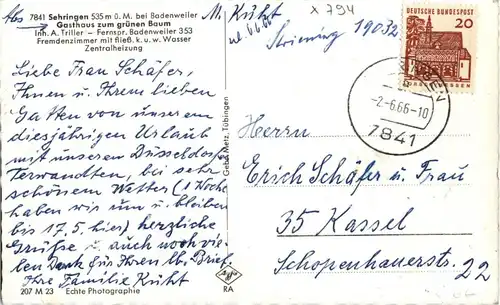 Abs. 7841 Sehringen 535 m ü. M. bei Badenweiler
Gasthaus zum grünen Baum
Inh. A. Triller - Fernspr. Badenweiler 353
Fremdenzimmer mit fließ. k. u. w. Wasser
Zentralheizung
M. Kühl
x 794
19032
Liebe Frau Schäfer,
Ihnen u. Ihrem lieben
Gatten von unserem
diesjährigen Urlaub
mit unseren Düsseldorfer
Verwandten, bei sehr
schönem Wetter (1 Woche
haben wir um u. bleiben
bis 17.5. hier) herzliche
Grüße u. auch noch vie-
len Dank für Ihren lb. Brief.
Ihre Familie Kühl
207 M 23 Echte Photographie
Gebr. Metz, Tübingen
RA
DEUTSCHE BUNDESPOST
20
-2.-6.66-10
7841
Herrn
Erich Schäfer u. Frau
35 Kassel
Schopenhauerstr. 22